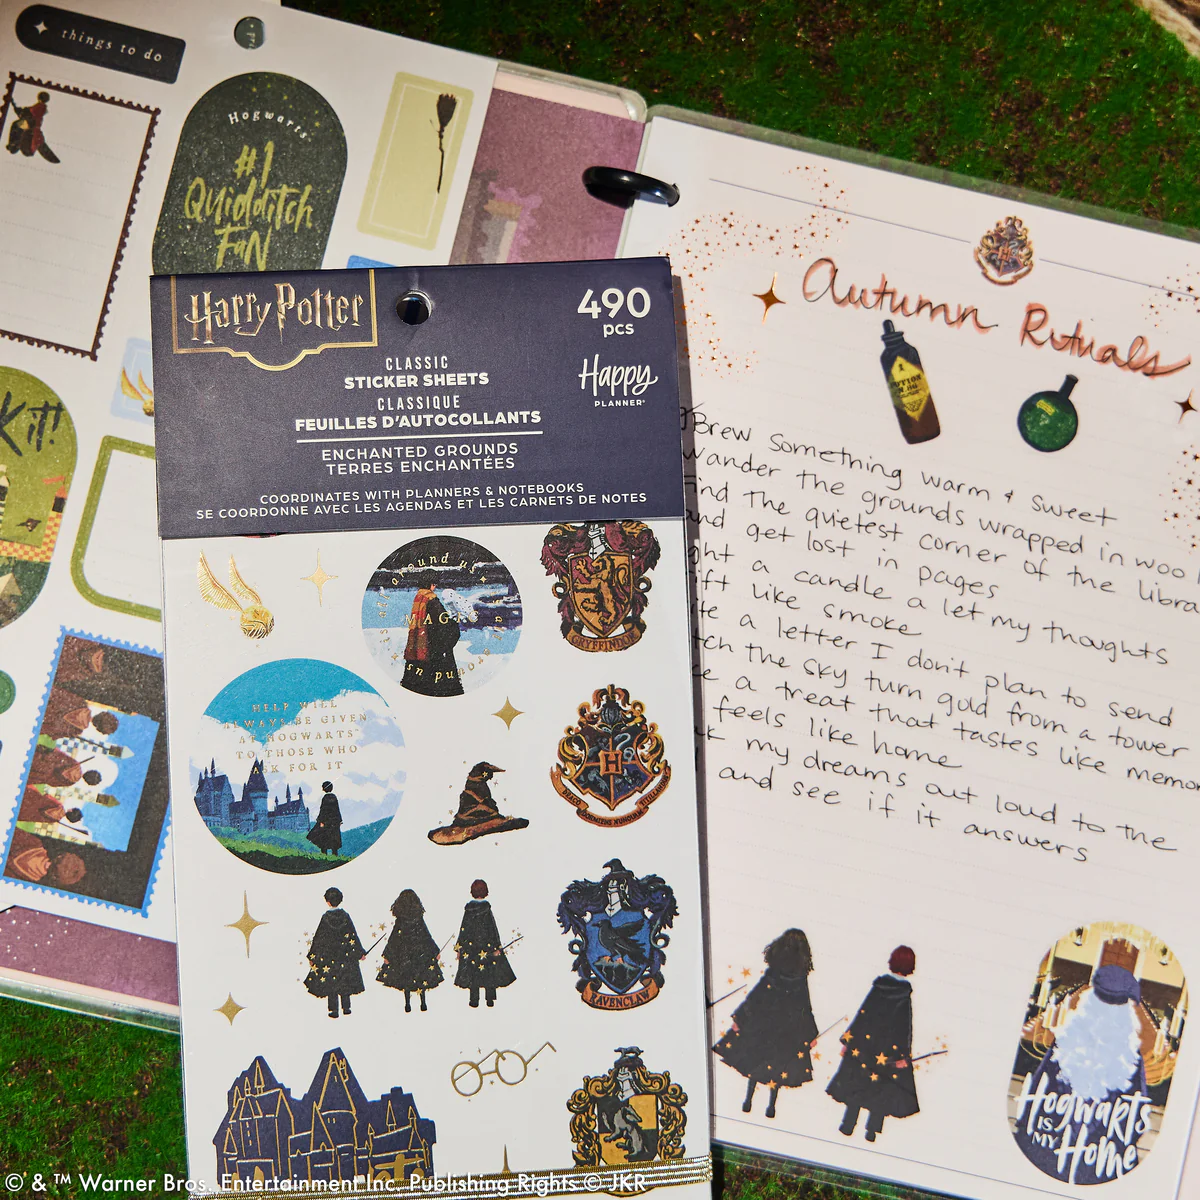 things to do
Hogwarts
#1
Quidditch
FaN
Kit!
Harry Potter
490
pcs
CLASSIC
STICKER SHEETS
CLASSIQUE
FEUILLES D'AUTOCOLLANTS
Happy
PLANNER®
ENCHANTED GROUNDS
TERRES ENCHANTÉES
COORDINATES WITH PLANNERS & NOTEBOOKS
SE COORDONNE AVEC LES AGENDAS ET LES CARNETS DE NOTES
around us
MAGIC
is all around us
GRYFFINDOR
HELP WILL
ALWAYS BE GIVEN
AT HOGWARTS™
TO THOSE WHO
ASK FOR IT
H
DRACO DORMIENS NUNQUAM TITILLANDUS
RAVENCLAW
Autumn Rituals
1
POTION
Brew something warm & sweet
wander the grounds wrapped in wool
find the quietest corner of the libra
and get lost in pages
ght a candle & let my thoughts
ift like smoke
te a letter I don't plan to send
tch the sky turn gold from a tower
e a treat that tastes like memor
feels like home
k my dreams out loud to the
and see if it answers
Hogwarts
IS
MY
Home
© & ™ Warner Bros. Entertainment Inc. Publishing Rights © JKR